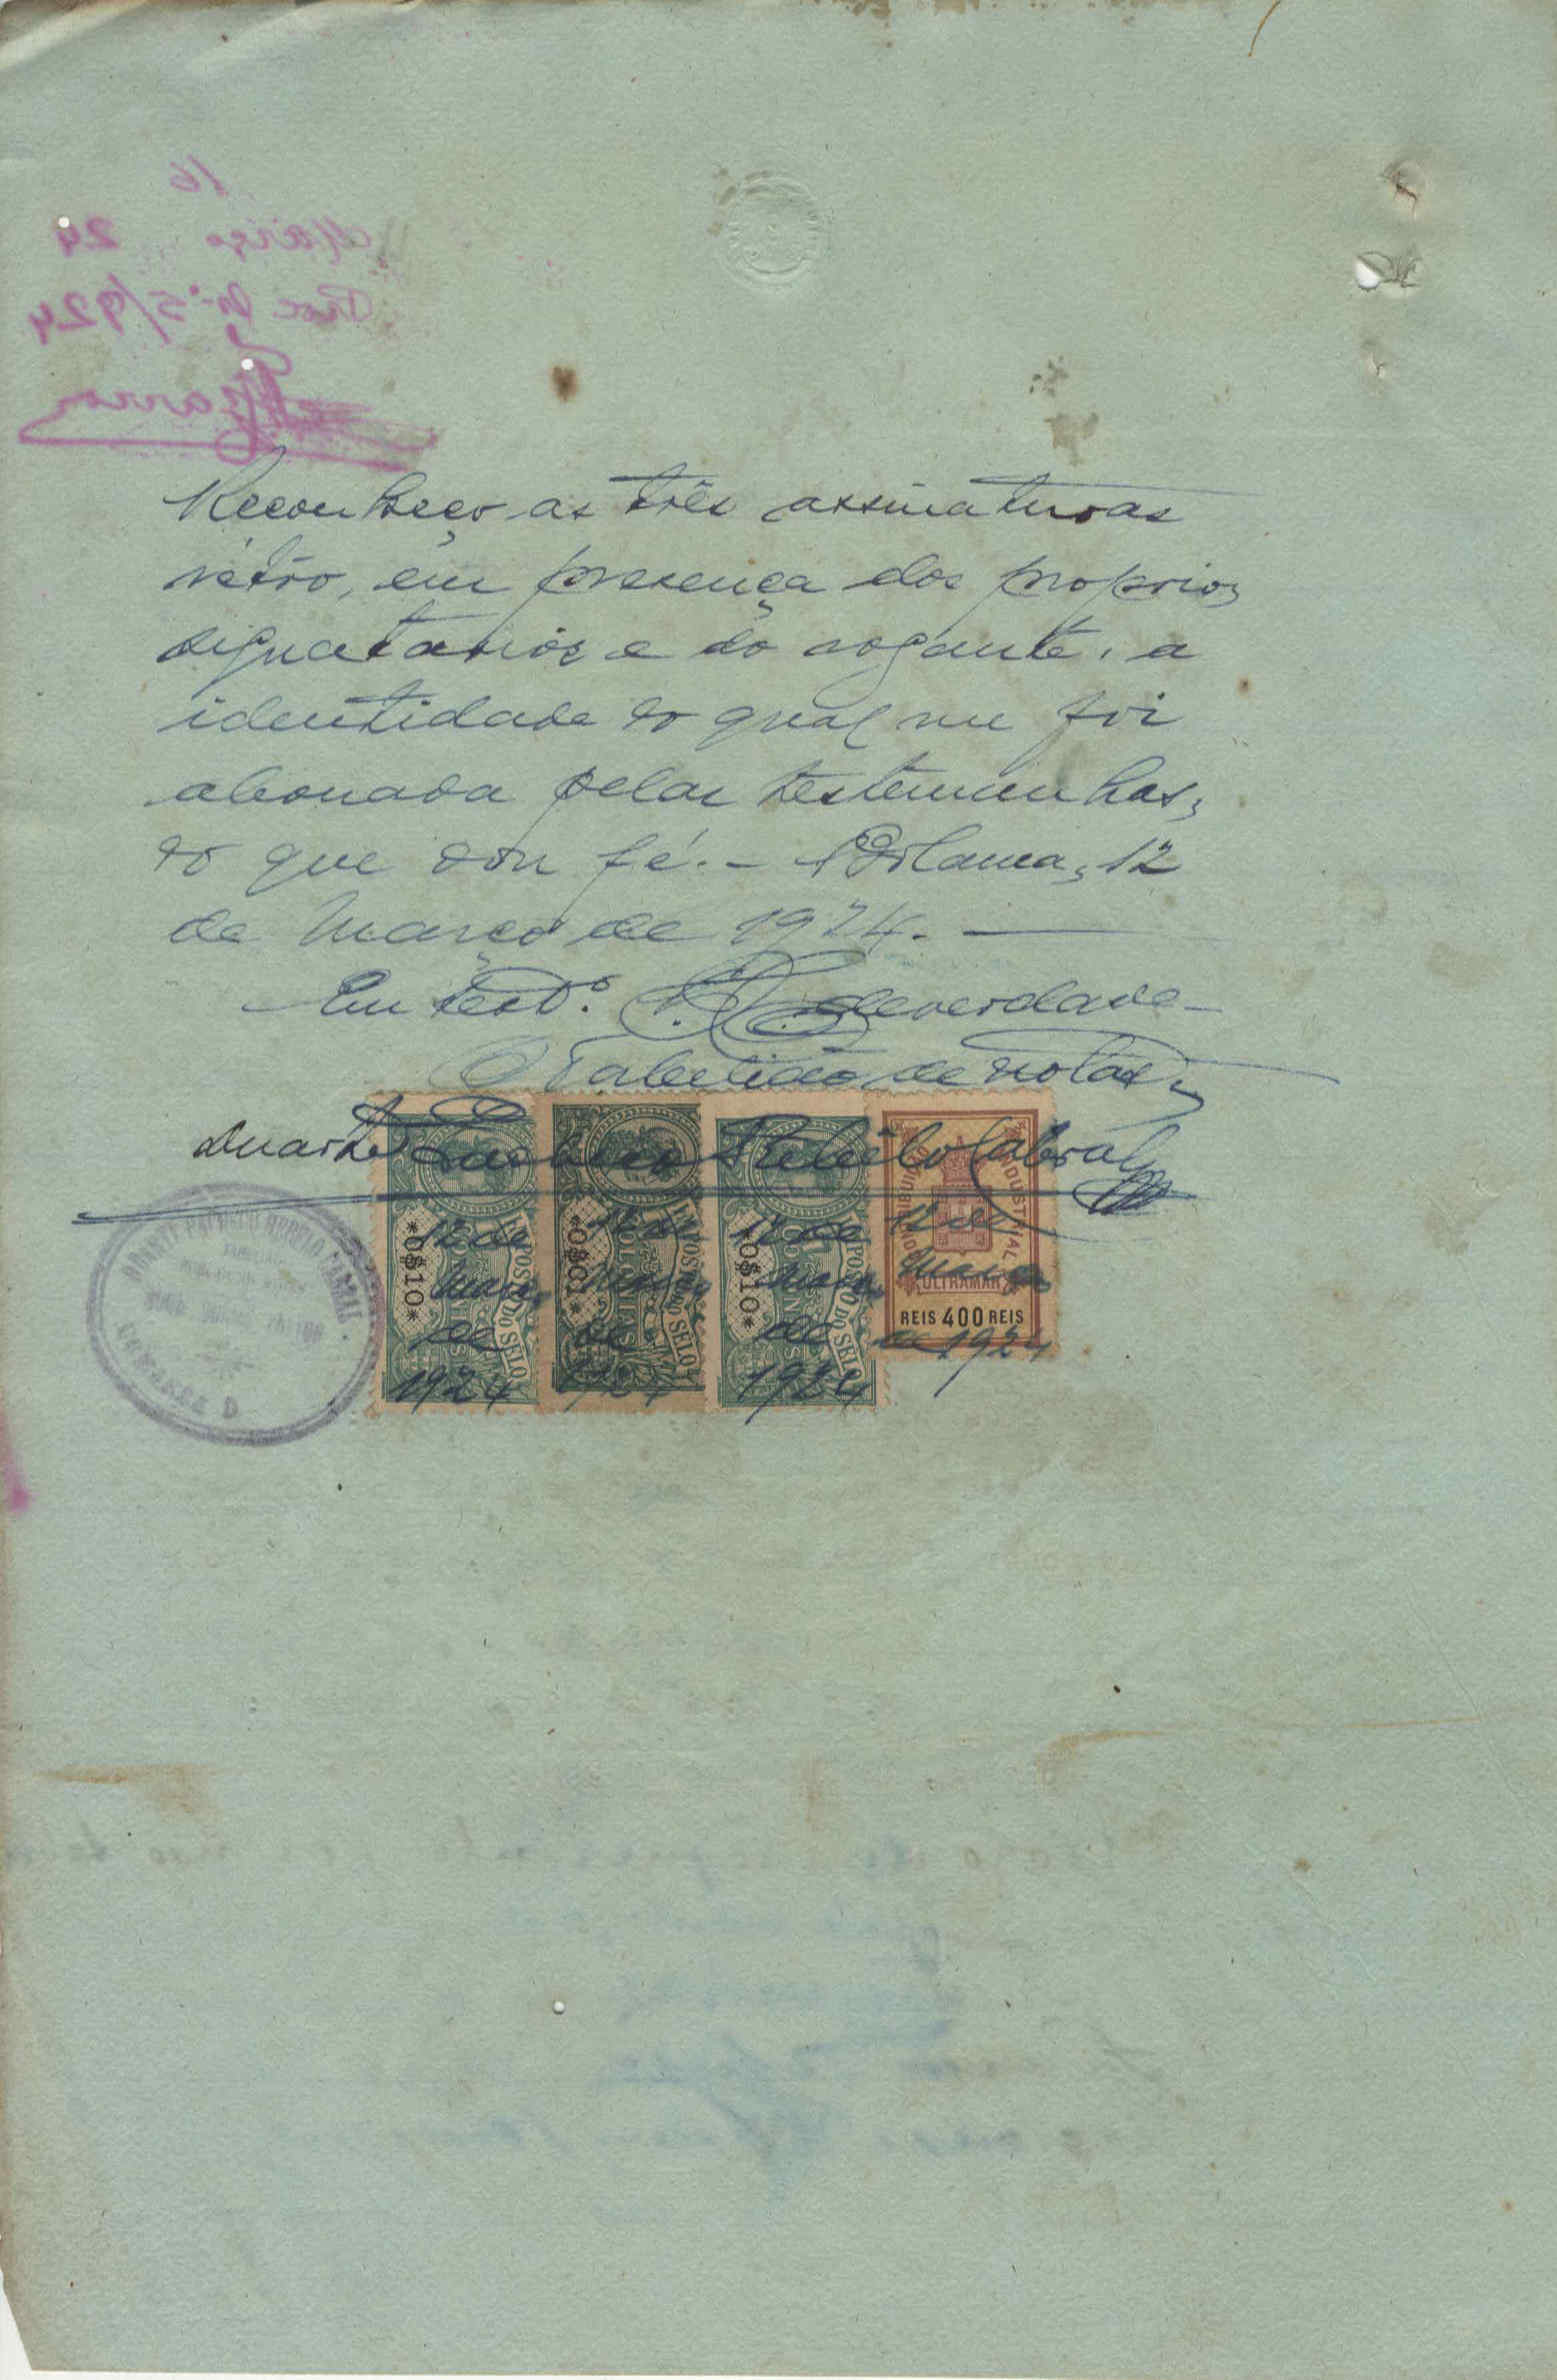 Reconheço as três assinaturas
rétro, em presença dos proprios
signatarios e do rogante, a
identidade do qual me foi
abonada pelas testemunhas,
do que dou fé. - Bolama, 12
de Março de 1924. -
Em test.º de verdade -
O Tabelião de notas,
Duarte Pacheco Rebêlo Cabral
12 de
Março
de
1924
12 de
Março
de
1924
12 de
Março
de
1924
12 de
Março
de 1924
IMPOSTO DO SELO
COLONIAS
*0$10*
IMPOSTO DO SELO
COLONIAS
*0$01*
IMPOSTO DO SELO
COLONIAS
*0$10*
CONTRIBUIÇÃO INDUSTRIAL
ULTRAMAR
REIS 400 REIS
DUARTE PACHECO REBELO CABRAL
16
Março 24
Proc Nº 5/924